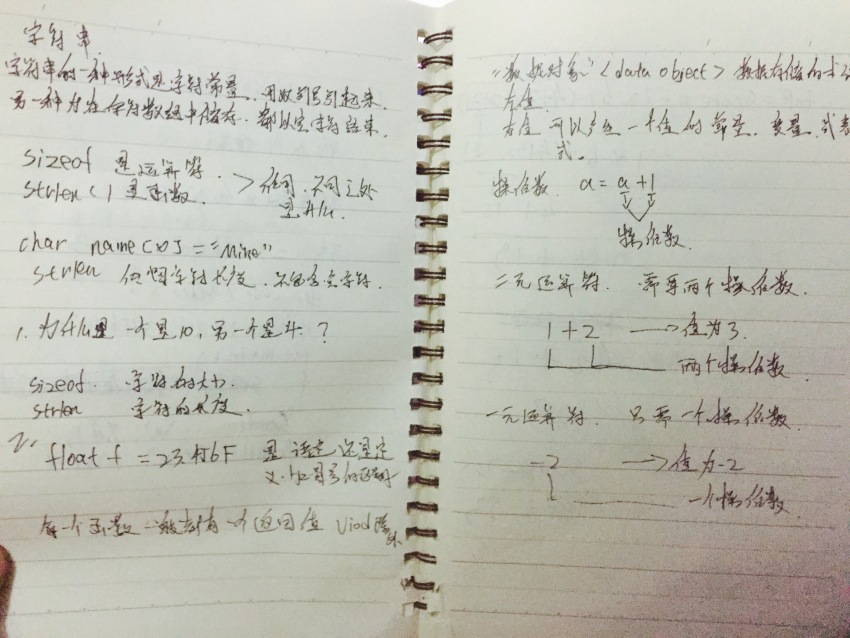 字符串.
字符串的一种形式是字符常量. 用双引号引起来.
另一种为在字符数组中储存. 都以空字符结束.
sizeof 是运算符.
strlen () 是函数. > 作用. 不同之处
是什么.
char name [10] = "Mike"
strlen 仅但字符长度. 不包含空字符.
1. 为什么是 一个是10, 另一个是4 ?
sizeof. 字符的大小.
strlen 字符的长度.
2.
float f = 23456F 是 还是定
义.
每一个函数一般都有一个返回值 Viod除外
"数据对象" <data object> 数据存储的
左值.
右值 可以产生一个值的常量. 变量. 或表
式.
操作数. a = a + 1
操作数.
二元运算符. 需要两个操作数.
1 + 2 —> 值为3.
两个操作数.
一元运算符. 只需一个操作数.
-2 —> 值为-2
一个操作数.